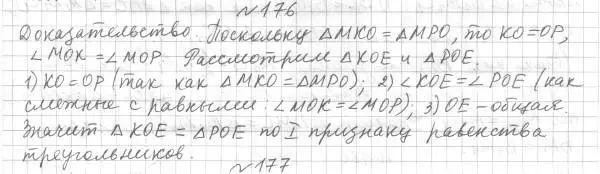 №176
Доказательство. Поскольку △MKO = △MPO, то KO=OP,
∠MOK =∠MOP. Рассмотрим △KOE и △POE.
1) KO=OP (так как △MKO=△MPO); 2) ∠KOE=∠POE (как
смежные с равными: ∠MOK=∠MOP); 3) OE-общая.
Значит △KOE = △POE по I признаку равенства
треугольников.
№177